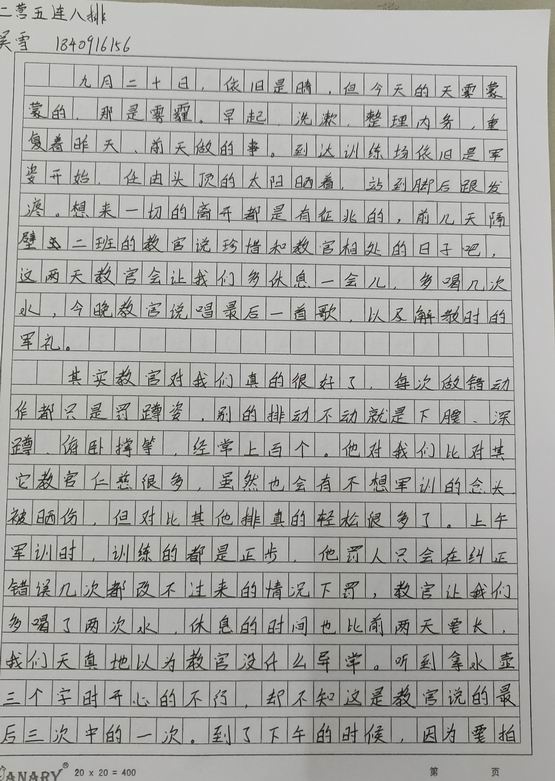 二营五连八排
吴雪 1840916156
九月二十日，依旧是晴，但今天的天雾蒙
蒙的，那是雾霾。早起，洗漱，整理内务，重
复着昨天、前天做的事。到达训练场依旧是军
姿开始，任由头顶的太阳晒着，站到脚后跟发
疼。想来一切的离开都是有征兆的，前几天隔
壁二班的教官说珍惜和教官相处的日子吧，
这两天教官会让我们多休息一会儿，多喝几次
水，今晚教官说唱最后一首歌，以及解散时的
军礼。
其实教官对我们真的很好了，每次做错动
作都只是罚蹲姿，别的排动不动就是下腰、深
蹲、俯卧撑等，经常上百个。他对我们比对其
它教官仁慈很多，虽然也会有不想军训的念头，
被晒伤，但对比其他排真的轻松很多了。上午
军训时，训练的都是正步，他罚人只会在纠正
错误几次都改不过来的情况下罚，教官让我们
多喝了两次水，休息的时间也比前两天要长，
我们天真地以为教官没什么异常。听到拿水壶
三个字时开心的不行，却不知这是教官说的最
后三次中的一次。到了下午的时候，因为要拍
CANARY® 20×20=400 第 页